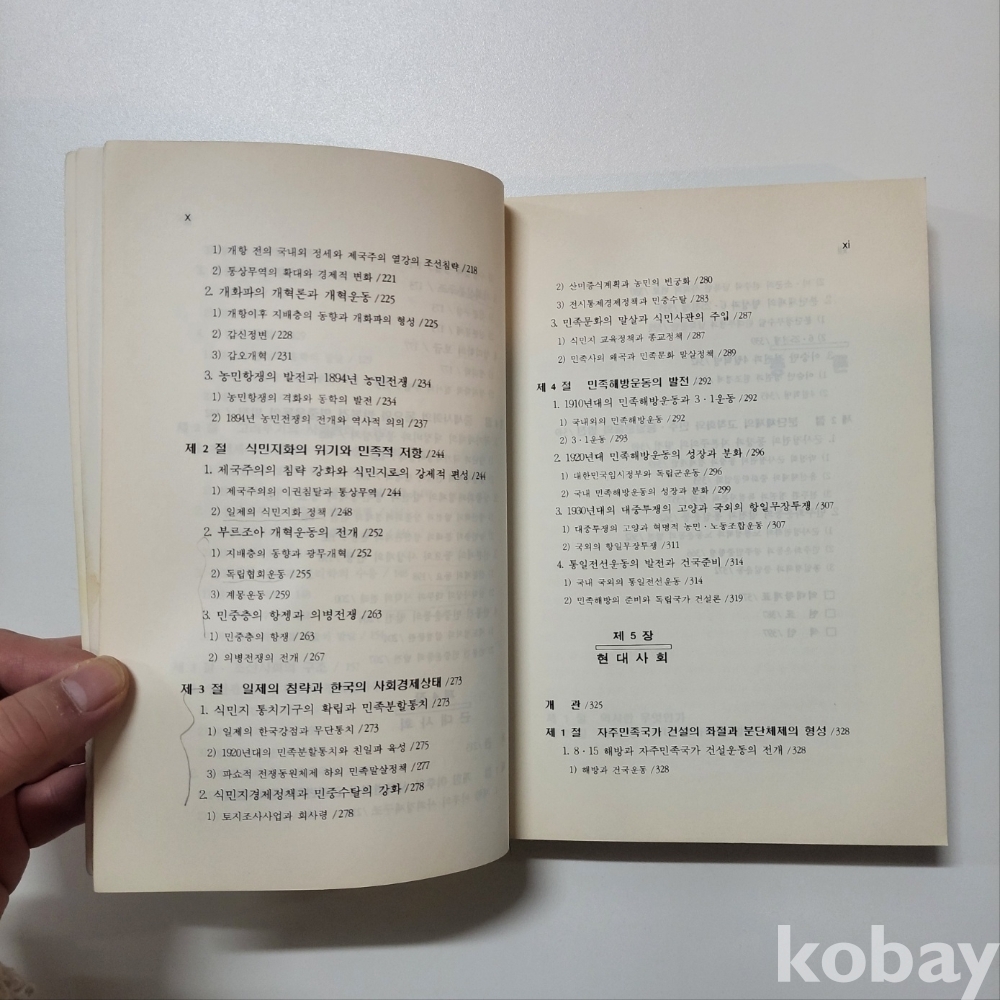 x
1) 개항 전의 국내외 정세와 제국주의 열강의 조선침략 /218
2) 통상무역의 확대와 경제적 변화 /221
2. 개화파의 개혁론과 개혁운동 /225
1) 개항이후 지배층의 동향과 개화파의 형성 /225
2) 갑신정변 /228
3) 갑오개혁 /231
3. 농민항쟁의 발전과 1894년 농민전쟁 /234
1) 농민항쟁의 격화와 동학의 발전 /234
2) 1894년 농민전쟁의 전개와 역사적 의의 /237
제 2 절 식민지화의 위기와 민족적 저항 /244
1. 제국주의의 침략 강화와 식민지로의 강제적 편성 /244
1) 제국주의의 이권침탈과 통상무역 /244
2) 일제의 식민지화 정책 /248
2. 부르조아 개혁운동의 전개 /252
1) 지배층의 동향과 광무개혁 /252
2) 독립협회운동 /255
3) 계몽운동 /259
3. 민중층의 항쟁과 의병전쟁 /263
1) 민중층의 항쟁 /263
2) 의병전쟁의 전개 /267
제 3 절 일제의 침략과 한국의 사회경제상태 /273
1. 식민지 통치기구의 확립과 민족분할통치 /273
1) 일제의 한국강점과 무단통치 /273
2) 1920년대의 민족분할통치와 친일파 육성 /275
3) 파쇼적 전쟁동원체제 하의 민족말살정책 /277
2. 식민지경제정책과 민중수탈의 강화 /278
1) 토지조사사업과 회사령 /278
xi
2) 산미증식계획과 농민의 빈궁화 /280
3) 전시통제경제정책과 민중수탈 /283
3. 민족문화의 말살과 식민사관의 주입 /287
1) 식민지 교육정책과 종교정책 /287
2) 민족사의 왜곡과 민족문화 말살정책 /289
제 4 절 민족해방운동의 발전 /292
1. 1910년대의 민족해방운동과 3·1운동 /292
1) 국내외의 민족해방운동 /292
2) 3·1운동 /293
2. 1920년대 민족해방운동의 성장과 분화 /296
1) 대한민국임시정부와 독립군운동 /296
2) 국내 민족해방운동의 성장과 분화 /299
3. 1930년대의 대중투쟁의 고양과 국외의 항일무장투쟁 /307
1) 대중투쟁의 고양과 혁명적 농민·노동조합운동 /307
2) 국외의 항일무장투쟁 /311
4. 통일전선운동의 발전과 건국준비 /314
1) 국내 국외의 통일전선운동 /314
2) 민족해방의 준비와 독립국가 건설론 /319
제 5 장
현대사회
개 관 /325
제 1 절 자주민족국가 건설의 좌절과 분단체제의 형성 /328
1. 8·15 해방과 자주민족국가 건설운동의 전개 /328
1) 해방과 건국운동 /328
kobay